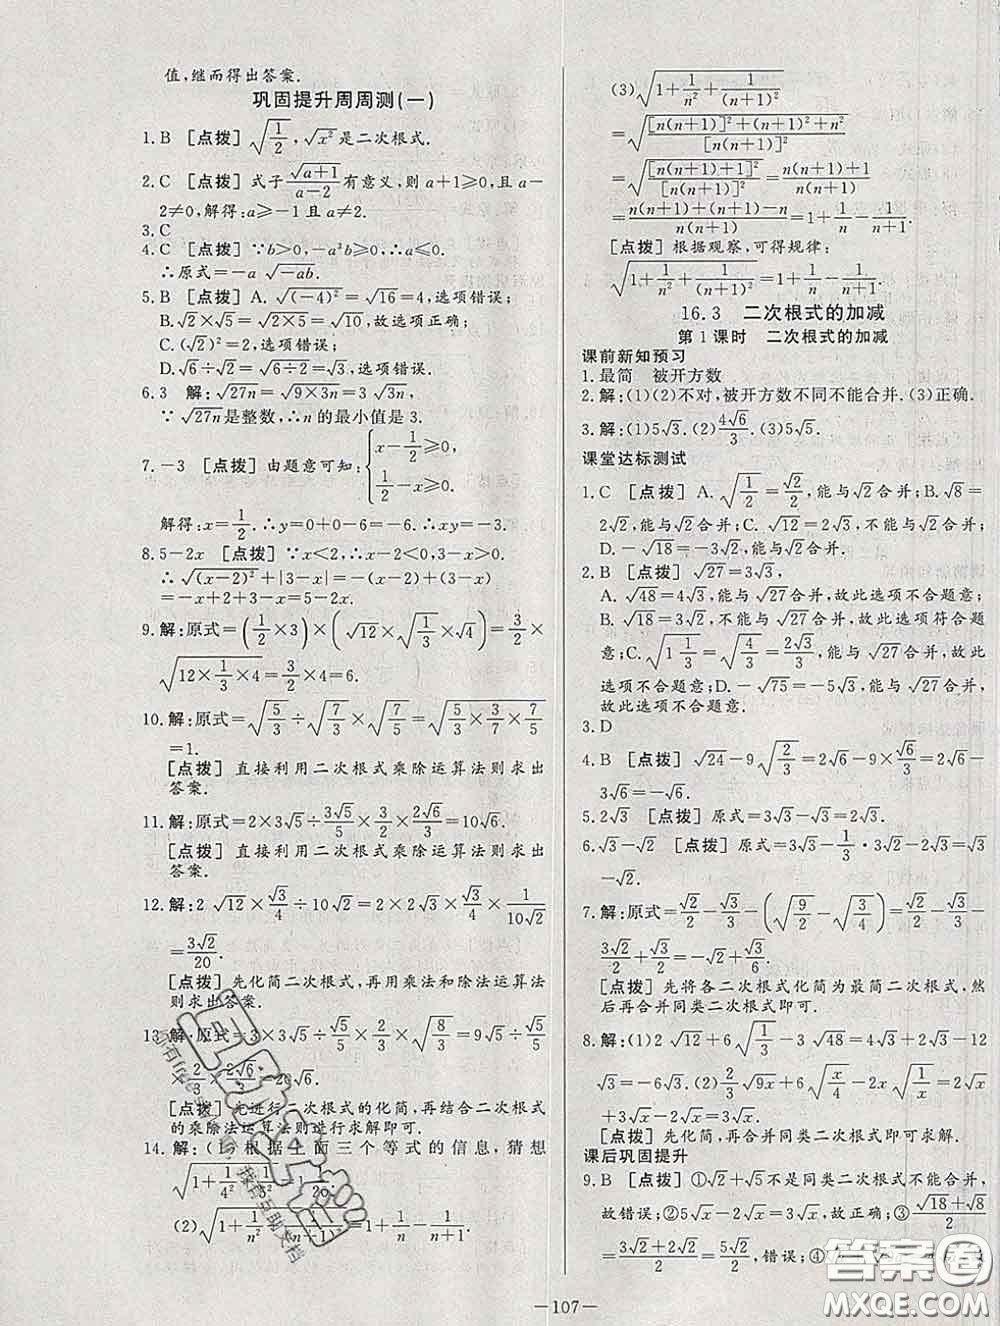 值,继而得出答案.
巩固提升周周测(一)
1.B [点拨] √(1/2), √x²是二次根式.
2.C [点拨] 式子 √(a+1)/(a-2) 有意义,则 a+1≥0,且 a-
2≠0,解得:a≥-1 且 a≠2.
3.C
4.C [点拨] ∵b>0,-a³b≥0,∴a≤0.
∴原式=-a √(-ab).
5.B [点拨] A. √((-4)²)=√16=4,选项错误;
B.√2×√5=√(5×2)=√10,故选项正确;
C.(√2)²=2,选项错误;
D.√6÷√5=√30/5,选项错误;
6.3 解:√(27n)=√(9×3n)=3√(3n),
∵ √(27n)是整数,∴n 的最小值是 3.
7.-3 [点拨] 由题意可知:{x-1/2≥0, 1/2-x≥0,
解得:x=1/2.∴y=0+0-6=-6.∴xy=-3.
8.5-2x [点拨] ∵x<2,∴x-2<0,3-x>0.
∴ √((x-2)²)+|3-x|=|x-2|+|3-x|
=-x+2+3-x=5-2x.
9.解:原式=(1/2×3)×(√12×√(1/3)×√4)=3/2×
√(12×1/3×4)=3/2×4=6.
10.解:原式=√(5/3)÷√(7/3)×√(7/5)=√(5/3×3/7×7/5)
=1.
[点拨] 直接利用二次根式乘除运算法则求出
答案.
11.解:原式=2×3√5÷3√5/5×3√2/2×2√3/3=10√6.
[点拨] 直接利用二次根式乘除运算法则求出
答案.
12.解:2 √12×√3/4÷10√2=2×2√3×√3/4×1/(10√2)
=3√2/20.
[点拨] 先化简二次根式,再用乘法和除法运算
则求出答案.
13.解:原式=3×3√5÷√5/2×2/3×√(8/3)=9√5÷√5/2
×2/3×2√6/3
[点拨] 先进行二次根式的化简,再结合二次根式
的乘除法运算法则进行求解即可.
14.解:(1)根据上面三个等式的信息,猜想
(3)√(1+1/n²+1/(n+1)²)
=√(([n(n+1)]²+(n+1)²+n²)/[n(n+1)]²)
=√([n(n+1)+1]²/[n(n+1)]²)=(n(n+1)+1)/(n(n+1))
=(n(n+1)+(n+1)-n)/(n(n+1))=1+1/n-1/(n+1).
[点拨] 根据观察,可得规律:
√(1+1/n²+1/(n+1)²)=1+1/n-1/(n+1).
16.3 二次根式的加减
第 1 课时 二次根式的加减
课前新知预习
1.最简 被开方数
2.解:(1)(2)不对,被开方数不同不能合并.(3)正确.
3.解:(1)5√3. (2)4√6/3. (3)5√5.
课堂达标测试
1.C [点拨] A.√(1/2)=√2/2,能与√2合并;B.√8=
2√2,能与√2合并;C. √12=2√3,不能与√2合并;
D.-√18=-3√2,能与√2合并.
2.B [点拨] √27=3√3,
A.√48=4√3,能与 √27合并,故此选项不合题意;
B.√18=3√2,不能与 √27合并,故此选项符合题
意;C.√(1 1/3)=√(4/3)=2√3/3,能与 √27合并,故此
选项不合题意;D.-√75=-5√3,能与√27合并,
故此选项不合题意.
3.D
4.B [点拨] √24-9√(2/3)=2√6-9×√6/3=2√6-
3√6=-√6.
5.2√3 [点拨] 原式=3√3-√3=2√3.
6.√3-√2 [点拨] 原式=3√3-1/3·3√2-2√3=√3
-√2.
7.解:原式=√2/2-√3/3-(√(9/2)-√(3/4))=√2/2-√3/3-
3√2/2+√3/2=-√2+√3/6.
[点拨] 先将各二次根式化简为最简二次根式,然
后再合并同类二次根式即可.
8.解:(1)2 √12+6√(1/3)-3 √48=4√3+2√3-12
√3=-6√3. (2)2/3√(9x)+6√(x/4)-2x√(1/x)=2√x
+3√x-2√x=3√x.
[点拨] 先化简,再合并同类二次根式即可求解.
课后巩固提升
9.B [点拨] ①√2+√5不是同类二次根式不能合并,
故错误;②5√x-2√x=3√x,正确;③(√18+√8)/2
=(3√2+2√2)/2=5√2/2,错误;④
答案圈
MXQE.COM
—107—